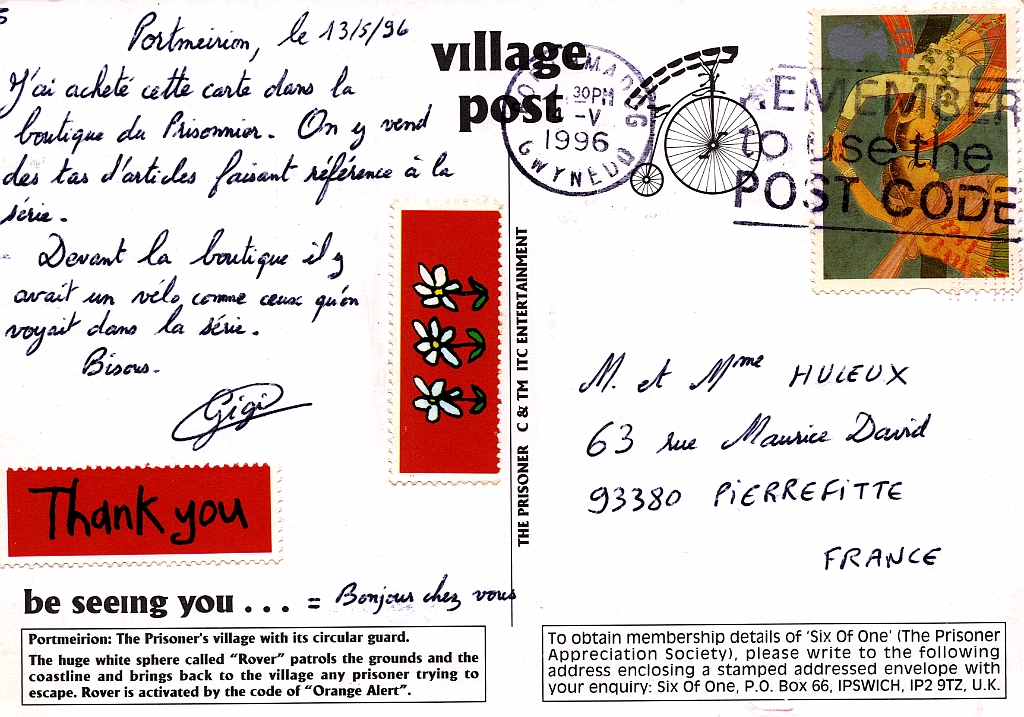 Portmeirion, le 13/5/96
J'ai acheté cette carte dans la
boutique du Prisonnier. On y vend
des tas d'articles faisant référence à la
série.
Devant la boutique il y
avait un vélo comme ceux qu'on
voyait dans la série.
Bisous.
Gigi
Thank you
be seeing you . . . = Bonjour chez vous
Portmeirion: The Prisoner's village with its circular guard.
The huge white sphere called "Rover" patrols the grounds and the
coastline and brings back to the village any prisoner trying to
escape. Rover is activated by the code of "Orange Alert".
village
post
30PM
-V
1996
GWYNEDD
REMEMBER
to use the
POST CODE
THE PRISONER C & TM ITC ENTERTAINMENT
M. et Mme HULEUX
63 rue Maurice David
93380 PIERREFITTE
FRANCE
To obtain membership details of 'Six Of One' (The Prisoner
Appreciation Society), please write to the following
address enclosing a stamped addressed envelope with
your enquiry: Six Of One, P.O. Box 66, IPSWICH, IP2 9TZ, U.K.